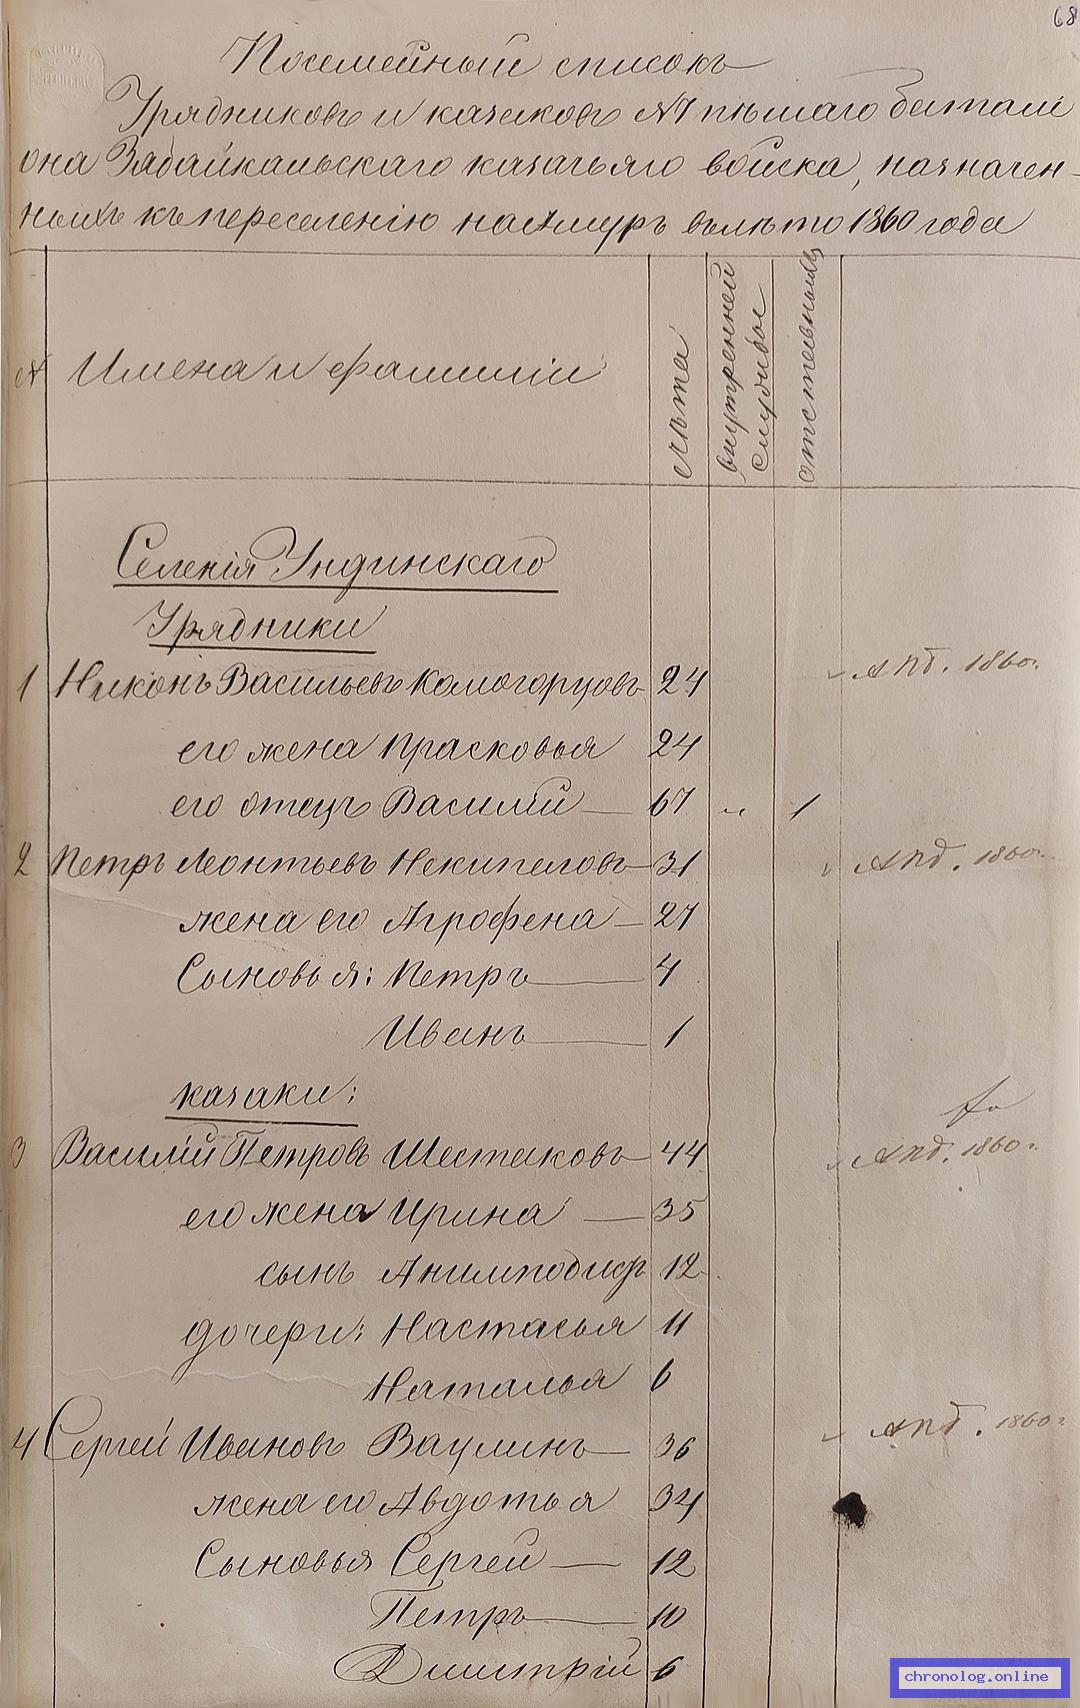 68
Посемейный списокъ
Урядниковъ и казаковъ №7 пѣшаго батали
она Забайкальскаго казачьяго войска, назначен-
ныхъ къ переселенію на Амуръ въ лѣто 1860 года
№ Имена и фамиліи лѣта внутренней службы отставныхъ
Селенія Ундинскаго
Урядники
1 Никонъ Васильевъ Комогорцовъ 24 Апд. 1860г.
его жена Прасковья 24
его отецъ Василій — 67 „ 1
2 Петръ Леонтьевъ Некипеловъ — 31 Апд. 1860г.
жена его Агрофена — 27
Сыновья: Петръ — 4
Иванъ — 1
казаки:
3 Василій Петровъ Шестаковъ — 44 Апд. 1860г.
его жена Ирина — 35
сынъ Анимподистъ 12
дочери: Настасья 11
Наталья 6
4 Сергей Ивановъ Ваулинъ — 36 Апд. 1860г.
жена его Авдотья 34
Сыновья Сергей — 12
Петръ — 10
Димитрій 6
chronolog.online